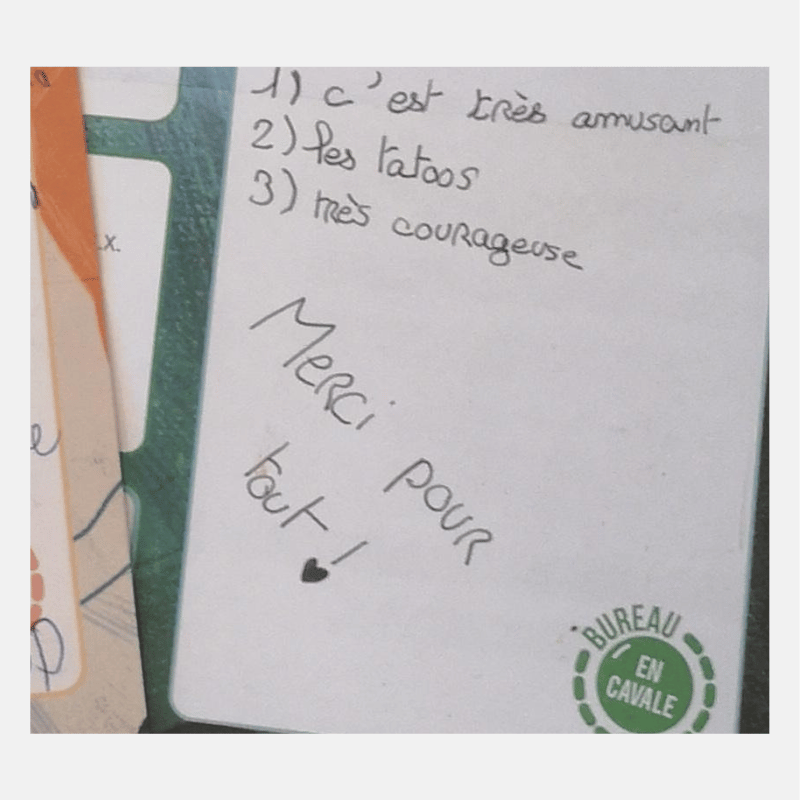 1) c'est très amusant
2) les tatoos
3) très courageuse
Merci pour
tout !
BUREAU
EN
CAVALE
.x.
e